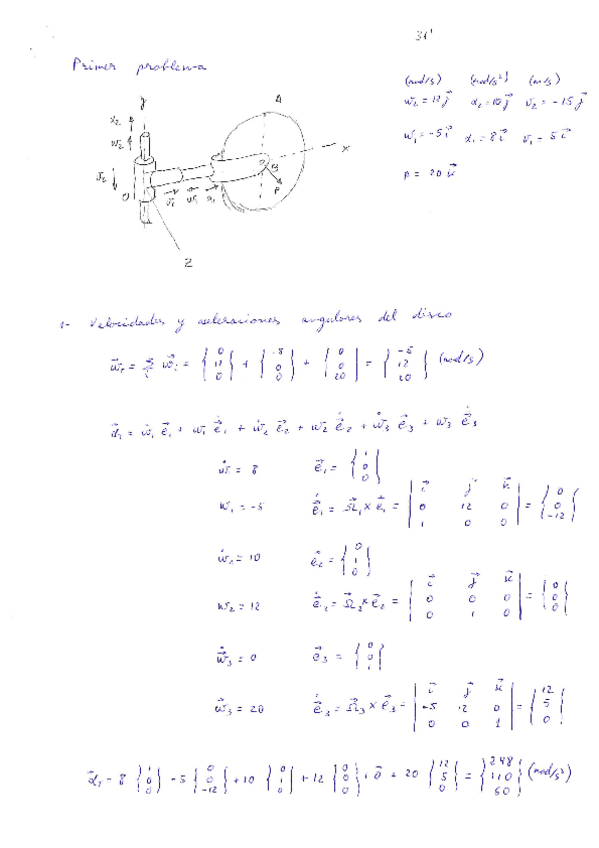 31'
Primer problema
(rad/s) (rad/s²) (m/s)
w₂ = 12 j⃗ α₂ = 10 j⃗ v₂ = -15 j⃗
w₁ = -5 i⃗ α₁ = 8 i⃗ v₁ = 5 i⃗
p = 20 k⃗
y
α₂
w₂
v₂
O
A
B
x
P
z
v⃗₁ w⃗₁ α₁
1- Velocidades y aceleraciones angulares del disco
{0 12 0} + { 0 0} + {0 0 20} = {-5 12 20} (rad/s)
α⃗ = ẇ₁ e⃗₁ + w₁ ė⃗₁ + ẇ₂ e⃗₂ + w₂ ė⃗₂ + ẇ₃ e⃗₃ + w₃ ė⃗₃
ẇ₁ = 8 e⃗₁ = {1 0 0}
w₁ = -5 ė⃗₁ = Ω⃗₁ x e⃗₁ = | i⃗ j⃗ k⃗ | 0 12 0 | 1 0 0 | = {0 0 -12}
ẇ₂ = 10 e⃗₂ = {0 1 0}
w₂ = 12 ė⃗₂ = Ω⃗₂ x e⃗₂ = | i⃗ j⃗ k⃗ | 0 0 0 | 0 1 0 | = {0 0 0}
ẇ₃ = 0 e⃗₃ = {0 0 1}
w⃗₃ = 20 ė⃗₃ = Ω⃗₃ x e⃗₃ = | i⃗ j⃗ k⃗ | -5 12 0 | 0 0 1 | = {12 5 0}
8 {1 0 0} - 5 {0 0 -12} + 10 {0 1 0} + 12 {0 0 0} + 0⃗ + 20 {12 5 0} = {248 110 60} (rad/s²)